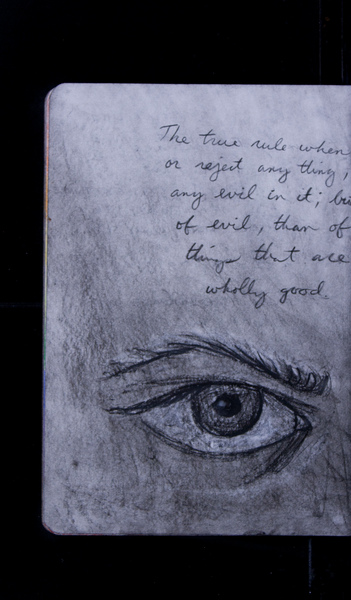 The true rule when
or reject any thing,
any evil in it; bu
of evil, than of
things that are
wholly good.